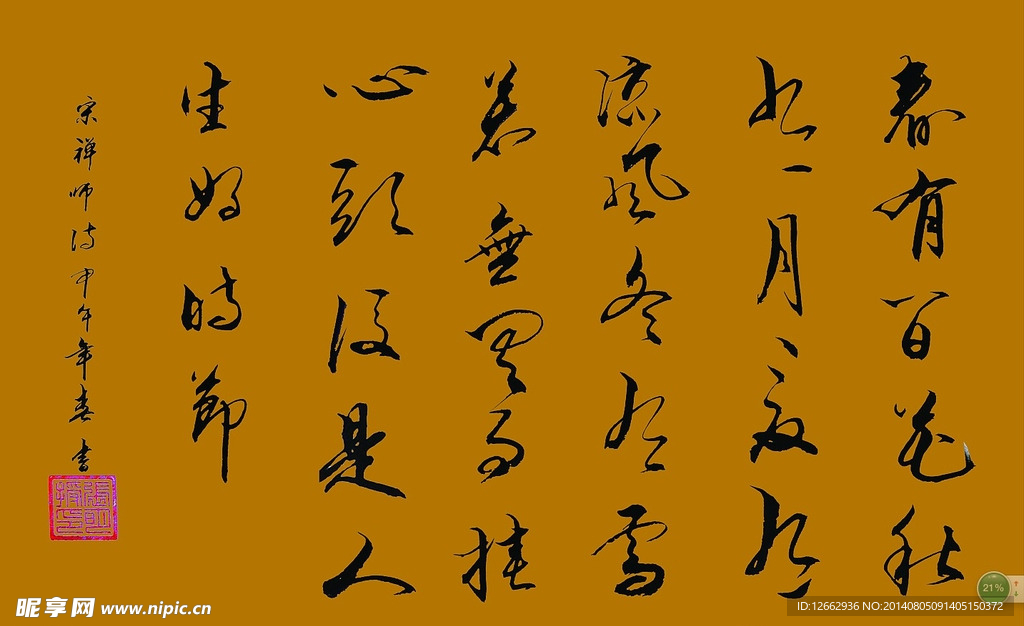 春有百花秋
有月夏有
凉風冬有雪
若無閑事挂
心頭便是人
生好時節
宋禅师诗甲午年春书
昵享网 www.nipic.cn
ID:12662936 NO:20140805091405150372
21%